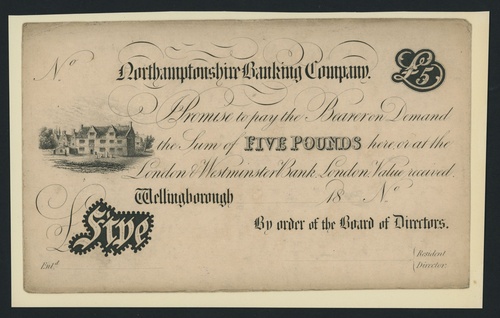 No
Northamptonshire Banking Company.
£5
I Promise to pay the Bearer on Demand
the Sum of FIVE POUNDS here or at the
London & Westminster Bank London Value received.
Wellingborough 18 No
By order of the Board of Directors.
£Five
Entd.
Resident
Director